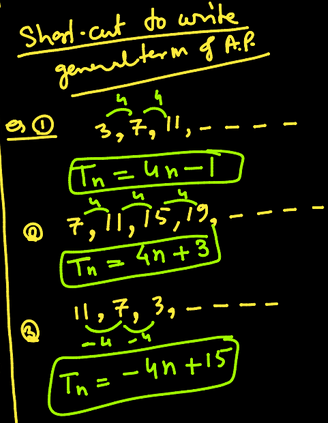 Short-cut to write
general term of A.P.
eg ①
4 4
3, 7, 11, - - - -
Tn = 4n - 1
②
4 4 4
7, 11, 15, 19, - - - -
Tn = 4n + 3
③
11, 7, 3, - - - -
-4 -4
Tn = -4n + 15